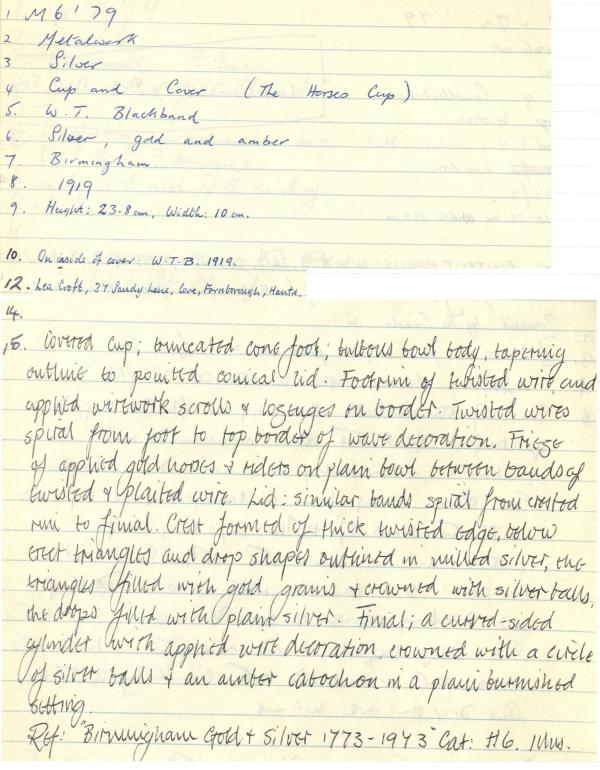 1 M 6 ' 79
2 Metalwork
3 Silver
4 Cup and Cover (The Horses Cup)
5. W. T. Blackband
6. Silver, gold and amber
7. Birmingham
8. 1919
9. Height: 23.8 cm. Width: 10 cm.
10. On inside of cover: W.T.B. 1919.
12. Lea Croft, 37 Sandy Lane, Cove, Farnborough, Hants.
14.
15. Covered cup; truncated cone foot; bulbous bowl body, tapering
outline to pointed conical lid. Footrim of twisted wire, and
applied wirework scrolls & lozenges on border. Twisted wires
spiral from foot to top border of wave decoration. Frieze
of applied gold horses & riders on plain bowl between bands of
twisted & plaited wire. Lid: similar bands spiral from crested
rim to finial. Crest formed of thick twisted edge, below
erect triangles and drop shapes outlined in milled silver, the
triangles filled with gold grains & crowned with silver balls,
the drops filled with plain silver. Finial; a curved-sided
cylinder with applied wire decoration, crowned with a circle
of silver balls & an amber cabochon in a plain burnished
setting.
Ref: "Birmingham Gold & Silver 1773-1973" Cat: H6. Illus.